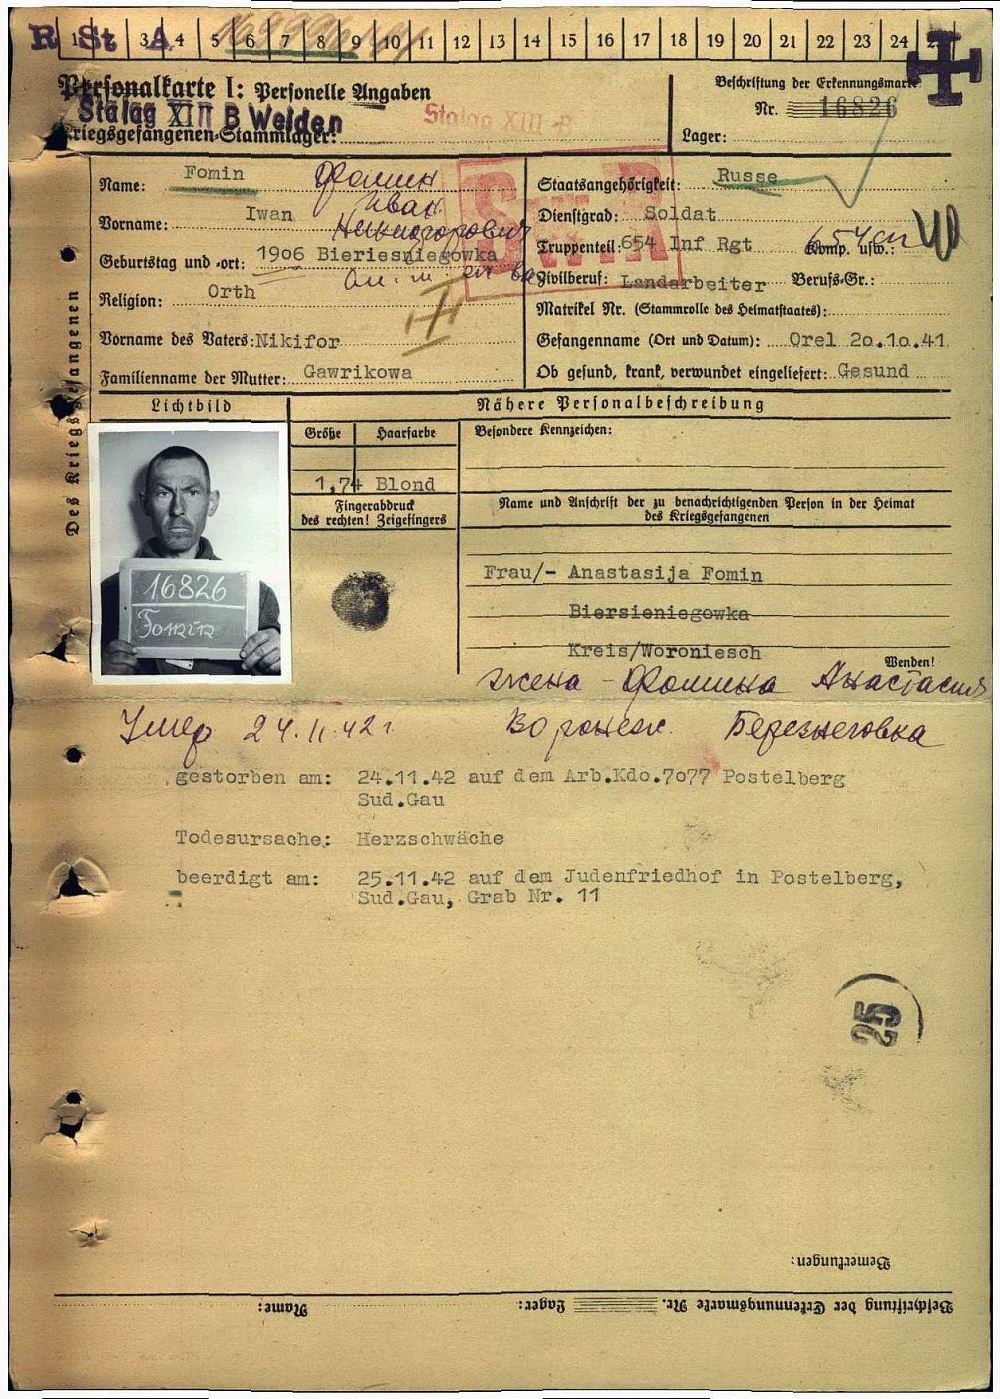 R St A
1 3 4 5 6 7 8 9 10 11 12 13 14 15 16 17 18 19 20 21 22 23 24 25
Personalkarte I: Personelle Angaben
Stalag XIII B Weiden
Stalag XIII B
Kriegsgefangenen-Stammlager:
Beschriftung der Erkennungsmarke
Nr. 16826
Lager:
Des Kriegsgefangenen
Name: Fomin Фомин
Vorname: Iwan Иван
Никифорович
Geburtstag und -ort: 1906 Bieriesniegowka
Religion: Orth
Vorname des Vaters: Nikifor
Familienname der Mutter: Gawrikowa
Staatsangehörigkeit: Russe
Dienstgrad: Soldat
Truppenteil: 654 Inf Rgt Komp. usw.:
Zivilberuf: Landarbeiter Berufs-Gr.:
Matrikel Nr. (Stammrolle des Heimatstaates):
Gefangenname (Ort und Datum): Orel 2o.1o.41
Ob gesund, krank, verwundet eingeliefert: Gesund
Lichtbild
Nähere Personalbeschreibung
Größe Haarfarbe
1,74 Blond
Fingerabdruck
des rechten! Zeigefingers
Besondere Kennzeichen:
Name und Anschrift der zu benachrichtigenden Person in der Heimat
des Kriegsgefangenen
Frau/- Anastasija Fomin
Biersieniegowka
Kreis/Woroniesch
Wenden!
16826
Fomin
жена - Фомина Анастасия
Умер 24.11.42г. Воронеж Березнеговка
gestorben am: 24.11.42 auf dem Arb.Kdo.7o77 Postelberg
Sud.Gau
Todesursache: Herzschwäche
beerdigt am: 25.11.42 auf dem Judenfriedhof in Postelberg,
Sud.Gau, Grab Nr. 11
25
Bemerkungen:
Beschriftung der Erkennungsmarke Nr. Lager: Name: